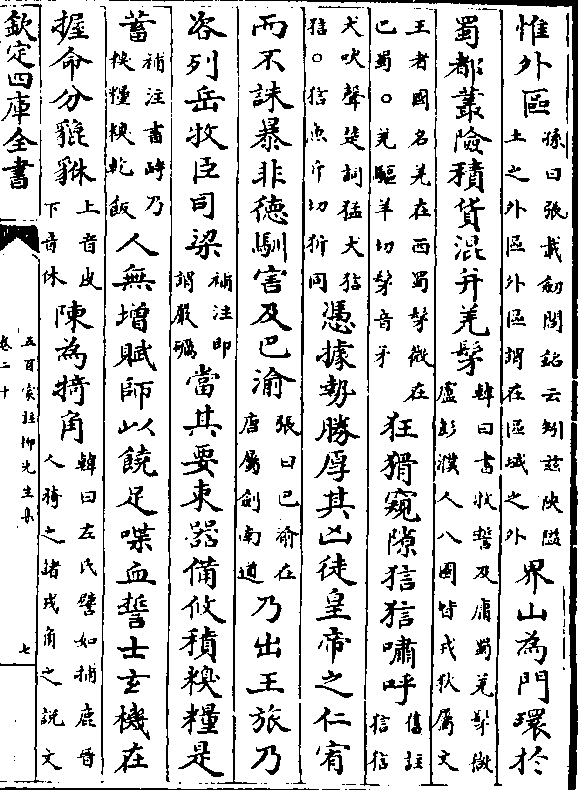 惟外區孫曰張載劍閣銘云矧兹陜隘土之外區外區謂在區域之外界山為門環於
蜀都叢險積貨混并羌髳韓曰書牧誓及庸蜀羌髳微盧彭濮人八國皆戎狄屬文
王者國名羌在西蜀髳微在巴蜀○羌驅羊切髳音矛狂猾窺隙狺狺嘯呼舊註狺狺
犬吠聲楚詞猛犬狺狺○狺魚斤切㹞同憑據勢勝厚其凶徒皇帝之仁宥
而不誅暴非德馴害及巴渝張曰巴渝在唐屬劍南道乃出王旅乃
咨列岳牧臣司梁補注即謂嚴礪當其要束器備攸積糗糧是
蓄補注書峙乃糗糧糗乾飯人無增賦師以饒足喋血誓士玄機在
握命分貔貅上音皮下音休陳為掎角韓曰左氏譬如捕鹿晉人掎之諸戎角之說文
欽定四庫全書
五百家註柳先生集
卷二十
七